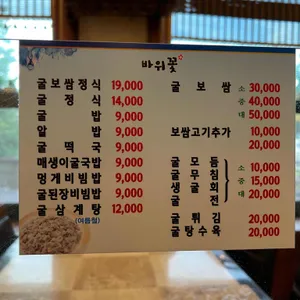 바위꽃
굴보쌈정식 19,000
굴정식 14,000
굴밥 9,000
알밥 9,000
굴떡국 9,000
매생이굴국밥 9,000
멍게비빔밥 9,000
굴된장비빔밥 9,000
굴삼계탕 12,000
(여름철)
굴보쌈 소 30,000
중 40,000
대 50,000
보쌈고기추가 10,000
20,000
굴모듬
굴무침 소 10,000
생굴회 중 15,000
굴전 대 20,000
굴튀김 20,000
굴탕수육 20,000